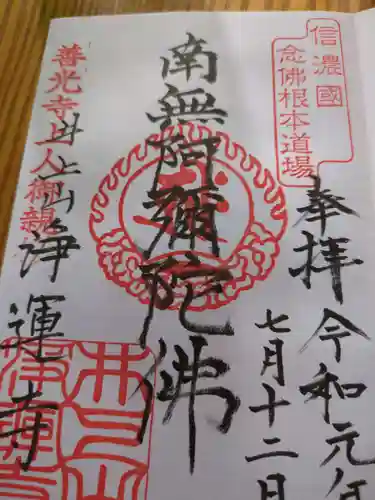 奉拝 令和元年
七月十二日
信濃國
念佛根本道場
南無阿彌陀佛
善光寺上人御親
井上山 浄運寺
井上山